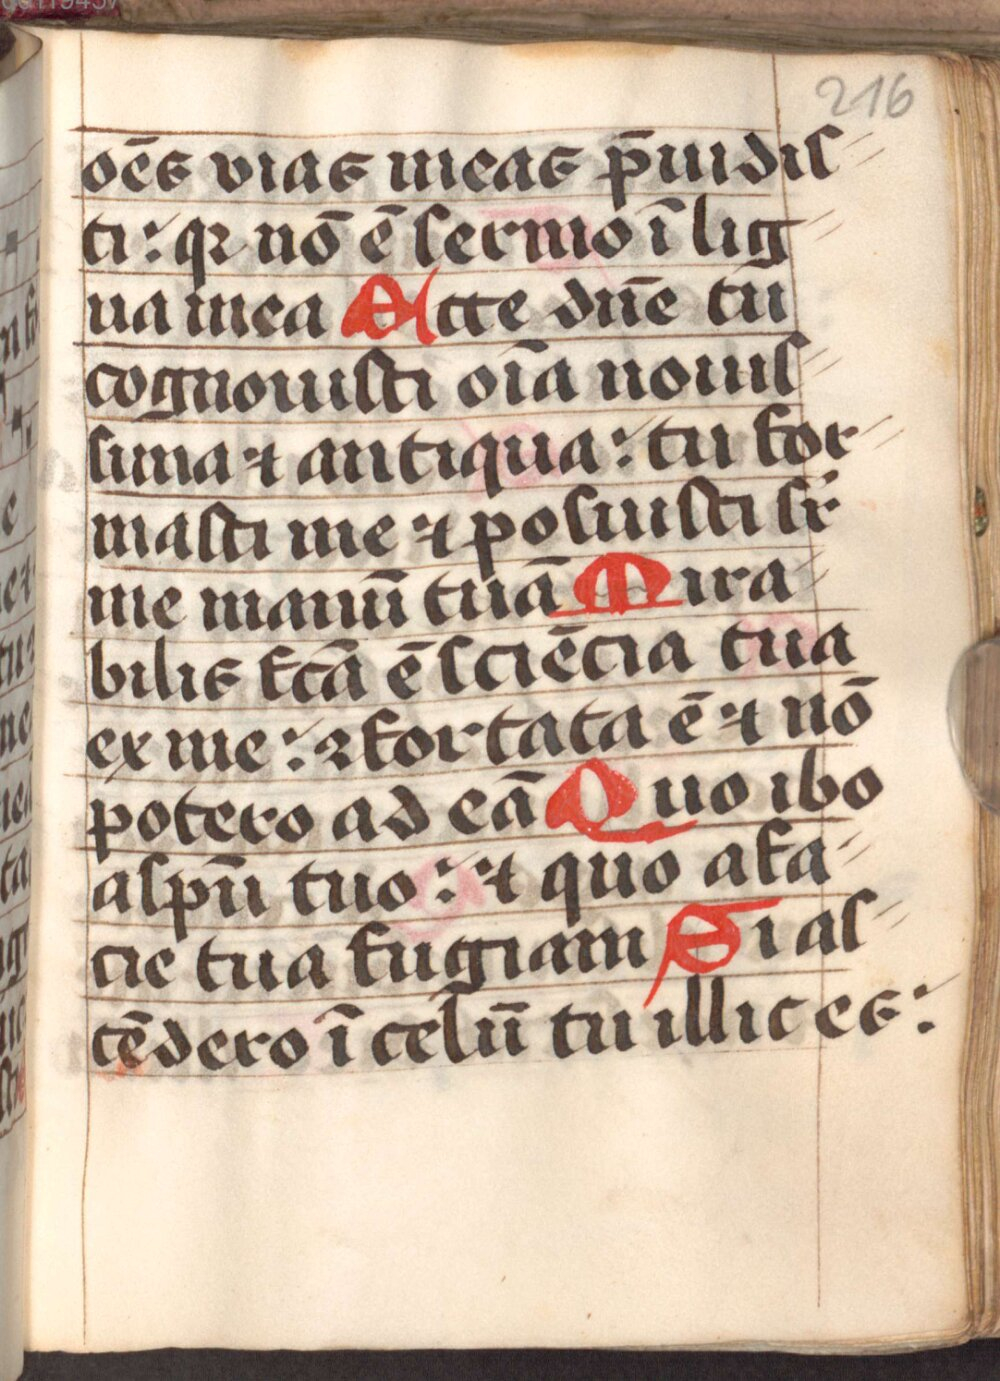 216
oēs vias meas p̄uidis
ti: qꝛ nō ē sermo ī lig
ua mea Ecce dn̄e tu
cognouisti oīa nouis
sima ⁊ antiqua: tu for
masti me ⁊ posuisti sr̄
me manū tuā Mira
bilis fc̄a ē sciēcia tua
ex me: ꝯfortata ē ⁊ nō
potero ad eā Quo ibo
a spū tuo: ⁊ quo a fa
cie tua fugiam Si as
cēdero ī celū tu illic es: